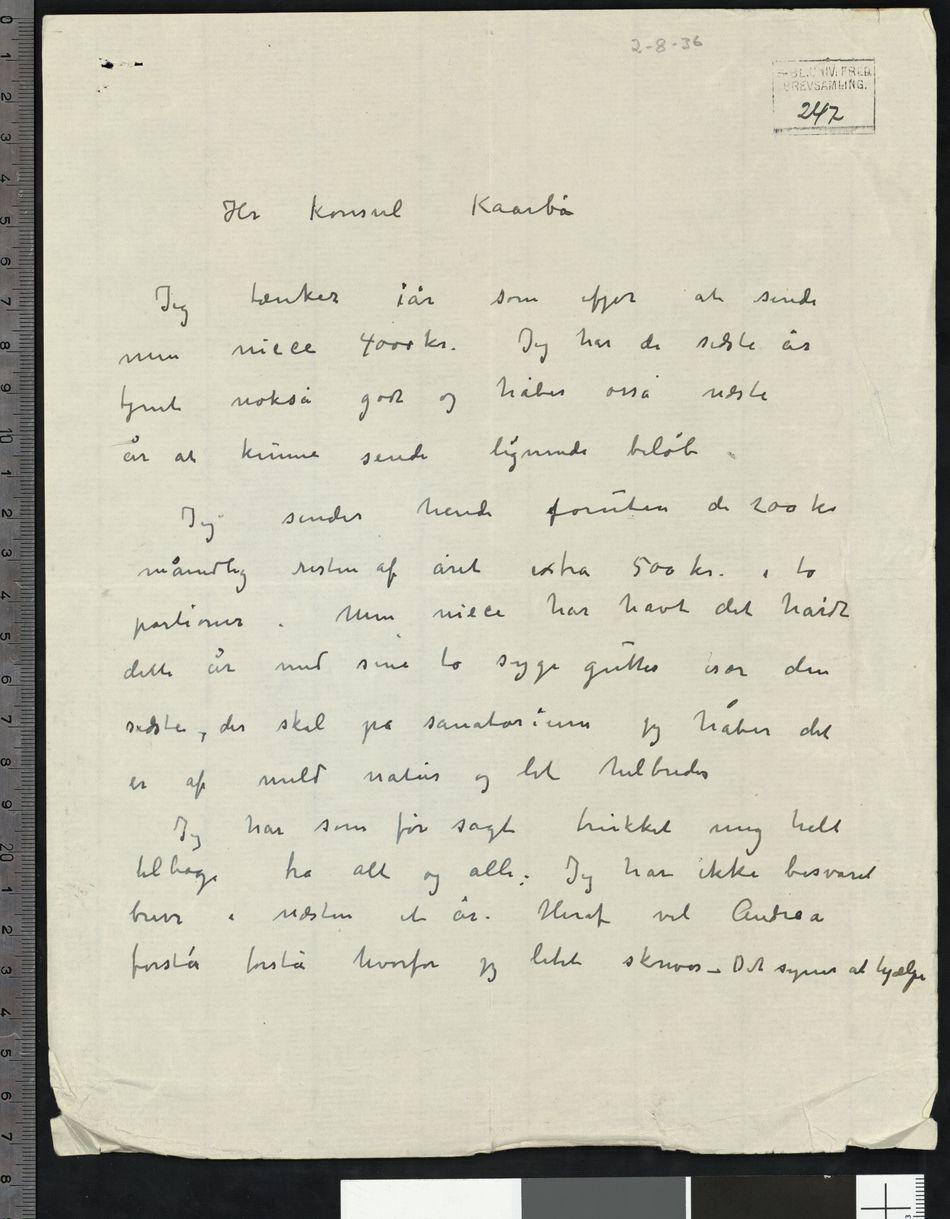 2-8-36
BL. UNIV. FRED.
BREVSAMLING.
247
Hr Konsul Kaarbø
Jeg tænker iår som ifjor at sende
min niece 4000 kr. Jeg har de sidste år
tjent nokså godt og håber også næste
år at kunne sende lignende beløb.
Jeg sender hende foruten de 200 kr
månedlig resten af året extra 500 kr. i to
portioner. Min niece har havt det hårdt
dette år med sine to syge gutter især den
sidste, der skal på sanatorium jeg håber det
er af mild natur og let helbredes
Jeg har som før sagt trukket mig helt
tilbage fra alt og alle. Jeg har ikke besvaret
breve i næsten et år. Heraf vil Andrea
forstår forstå hvorfor jeg lidet skriver – Det synes at hjælpe